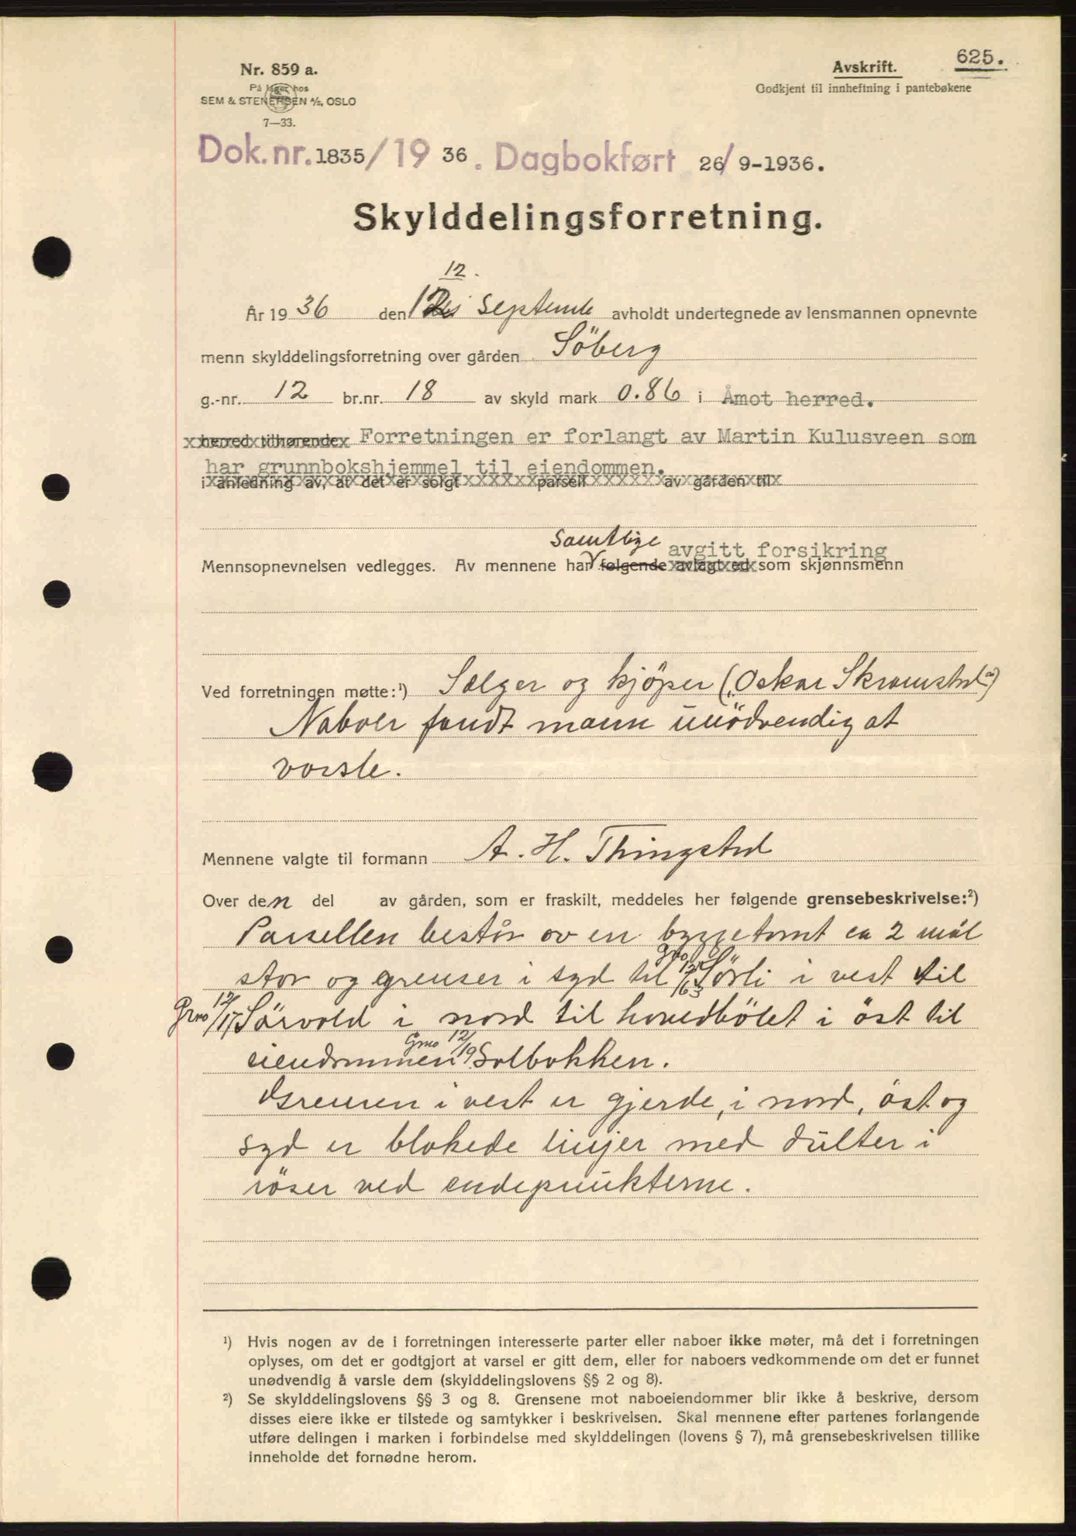 625.
Nr. 859 a.
På lager hos
SEM & STENERSEN A/S, OSLO
7—33.
Avskrift.
Godkjent til innheftning i pantebøkene
Dok. nr. 1835/1936. Dagbokført 26/9-1936.
Skylddelingsforretning.
12.
År 1936 den 12 Septembe avholdt undertegnede av lensmannen opnevnte
menn skylddelingsforretning over gården Söberg
g.-nr. 12 br.nr. 18 av skyld mark 0.86 i Åmot herred.
herred tilhørende Forretningen er forlangt av Martin Kulusveen som
har grunnbokshjemmel til eiendommen.
i anledning av, at det er solgt parsell av gården til
samtlige avgitt forsikring
Mennsopnevnelsen vedlegges. Av mennene har følgende avlagt ed som skjønnsmenn
Ved forretningen møtte:¹) Sælger og kjöper (Oskar Skramstad)
Naboer fandt mann unödvendig at
varsle.
Mennene valgte til formann A. H. Thingstad
Over den del av gården, som er fraskilt, meddeles her følgende grensebeskrivelse:²)
Parsellen består av en byggetomt ca 2 mål
stor og grenser i syd til gno 12/63 Sörli i vest til
Gno 12/17 Sörvold i nord til hovedbölet i öst til
eiendommen Gno 12/19 Solbakken.
Grensen i vest er gjerde, i nord, öst og
syd er blokede linjer med dulter i
röser ved endepunkterne.
¹) Hvis nogen av de i forretningen interesserte parter eller naboer ikke møter, må det i forretningen
oplyses, om det er godtgjort at varsel er gitt dem, eller for naboers vedkommende om det er funnet
unødvendig å varsle dem (skylddelingslovens §§ 2 og 8).
²) Se skylddelingslovens §§ 3 og 8. Grensene mot naboeiendommer blir ikke å beskrive, dersom
disses eiere ikke er tilstede og samtykker i beskrivelsen. Skal mennene efter partenes forlangende
utføre delingen i marken i forbindelse med skylddelingen (lovens § 7), må grensebeskrivelsen tillike
inneholde det fornødne herom.